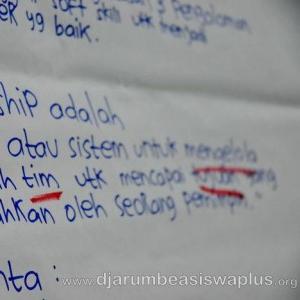 soft skill utk menjadi
ER yg baik.
ship adalah
atau sistem untuk mengelola
tim utk mencapai tujuan yang
ahkan oleh seorang pemimpin."
nta :
www.djarumbeasiswaplus.org